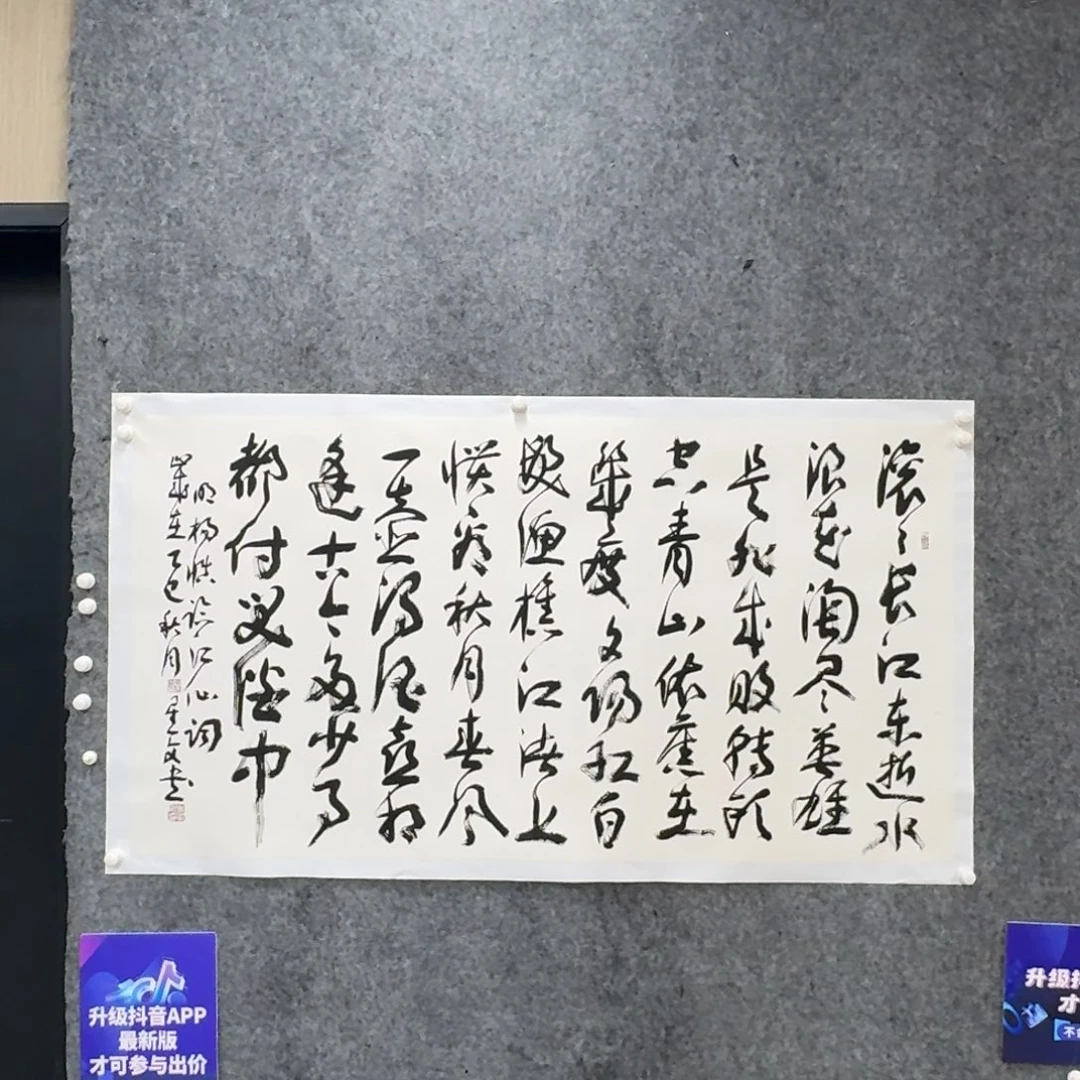 滚〻长江东逝水
浪花淘尽英雄
是非成败转头
空青山依旧在
幾度夕阳红白
发渔樵江渚上
惯看秋月春风
一壶浊酒喜相
逢古今多少事
都付笑谈中
明杨慎临江仙词
岁在乙巳秋月
文书
升级抖音APP
最新版
才可参与出价
升级抖
才